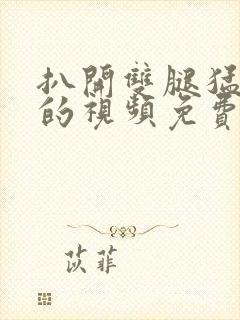 扒開雙腿猛
的視頻免費
苡菲